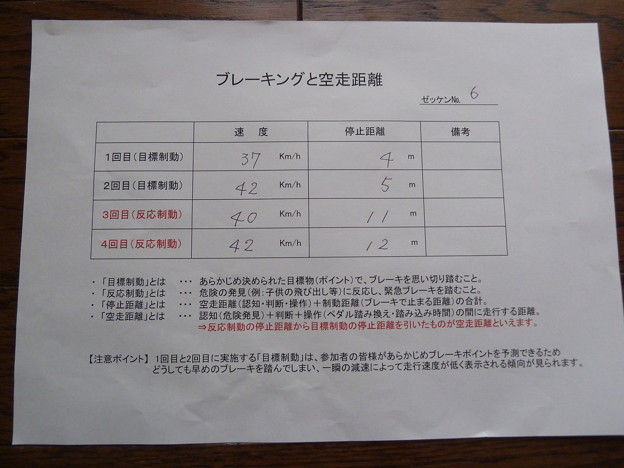 ブレーキングと空走距離
ゼッケン№ 6
速 度 停止距離 備考
1回目(目標制動) 37 Km/h 4 m
2回目(目標制動) 42 Km/h 5 m
3回目(反応制動) 40 Km/h 11 m
4回目(反応制動) 42 Km/h 12 m
・「目標制動」とは ・・・ あらかじめ決められた目標物(ポイント)で、ブレーキを思い切り踏むこと。
・「反応制動」とは ・・・ 危険の発見(例:子供の飛び出し等)に反応し、緊急ブレーキを踏むこと。
・「停止距離」とは ・・・ 空走距離(認知・判断・操作)+制動距離(ブレーキで止まる距離)の合計。
・「空走距離」とは ・・・ 認知(危険発見)+判断+操作(ペダル踏み換え・踏み込み時間)の間に走行する距離。
⇒反応制動の停止距離から目標制動の停止距離を引いたものが空走距離といえます。
【注意ポイント】 1回目と2回目に実施する「目標制動」は、参加者の皆様があらかじめブレーキポイントを予測できるため
どうしても早めのブレーキを踏んでしまい、一瞬の減速によって走行速度が低く表示される傾向が見られます。